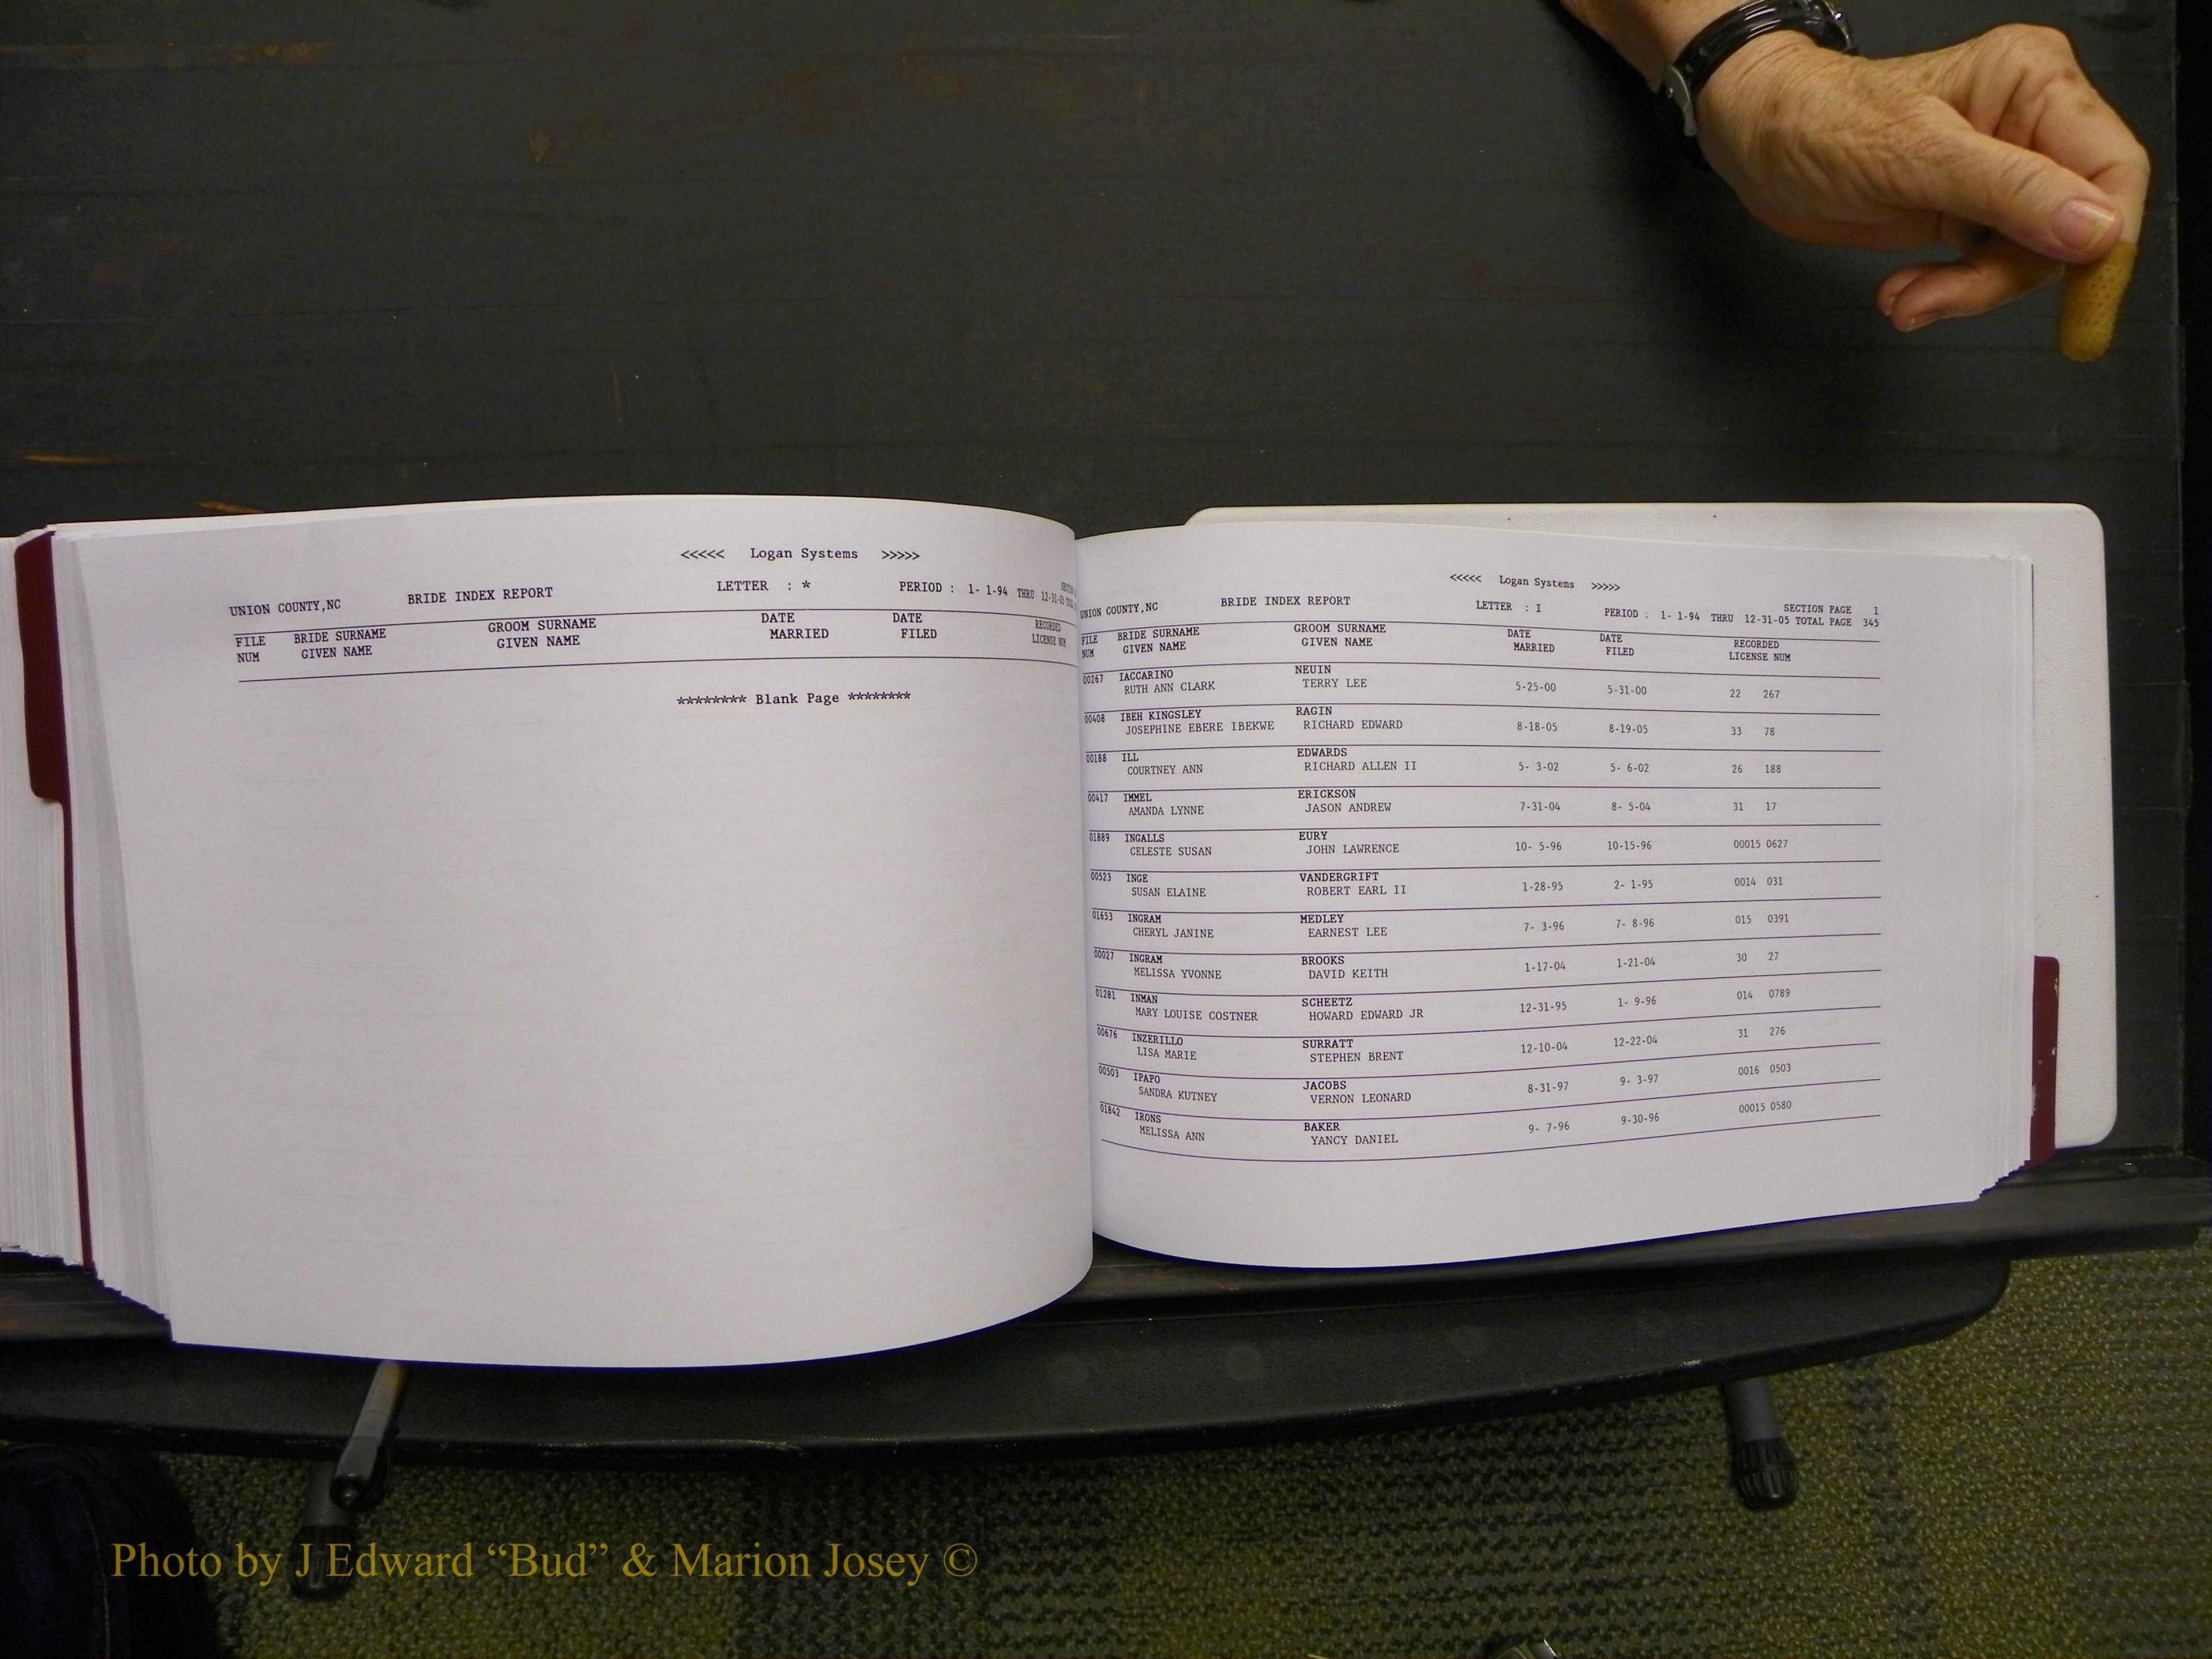 <<<<< Logan Systems >>>>>
UNION COUNTY,NC BRIDE INDEX REPORT LETTER : * PERIOD : 1- 1-94 THRU 12-31-05
FILE BRIDE SURNAME GROOM SURNAME DATE DATE RECORDED
NUM GIVEN NAME GIVEN NAME MARRIED FILED LICENSE NUM
******** Blank Page ********
<<<<< Logan Systems >>>>>
SECTION PAGE 1
UNION COUNTY,NC BRIDE INDEX REPORT LETTER : I PERIOD : 1- 1-94 THRU 12-31-05 TOTAL PAGE 345
FILE BRIDE SURNAME GROOM SURNAME DATE DATE RECORDED
NUM GIVEN NAME GIVEN NAME MARRIED FILED LICENSE NUM
00267 IACCARINO NEUIN
RUTH ANN CLARK TERRY LEE 5-25-00 5-31-00 22 267
00408 IBEH KINGSLEY RAGIN
JOSEPHINE EBERE IBEKWE RICHARD EDWARD 8-18-05 8-19-05 33 78
00188 ILL EDWARDS
COURTNEY ANN RICHARD ALLEN II 5- 3-02 5- 6-02 26 188
00417 IMMEL ERICKSON
AMANDA LYNNE JASON ANDREW 7-31-04 8- 5-04 31 17
01889 INGALLS EURY
CELESTE SUSAN JOHN LAWRENCE 10- 5-96 10-15-96 00015 0627
00523 INGE VANDERGRIFT
SUSAN ELAINE ROBERT EARL II 1-28-95 2- 1-95 0014 031
01653 INGRAM MEDLEY
CHERYL JANINE EARNEST LEE 7- 3-96 7- 8-96 015 0391
00027 INGRAM BROOKS
MELISSA YVONNE DAVID KEITH 1-17-04 1-21-04 30 27
01281 INMAN SCHEETZ
MARY LOUISE COSTNER HOWARD EDWARD JR 12-31-95 1- 9-96 014 0789
00676 INZERILLO SURRATT
LISA MARIE STEPHEN BRENT 12-10-04 12-22-04 31 276
00503 IPAPO JACOBS
SANDRA KUTNEY VERNON LEONARD 8-31-97 9- 3-97 0016 0503
01842 IRONS BAKER
MELISSA ANN YANCY DANIEL 9- 7-96 9-30-96 00015 0580
Photo by J Edward “Bud” & Marion Josey ©